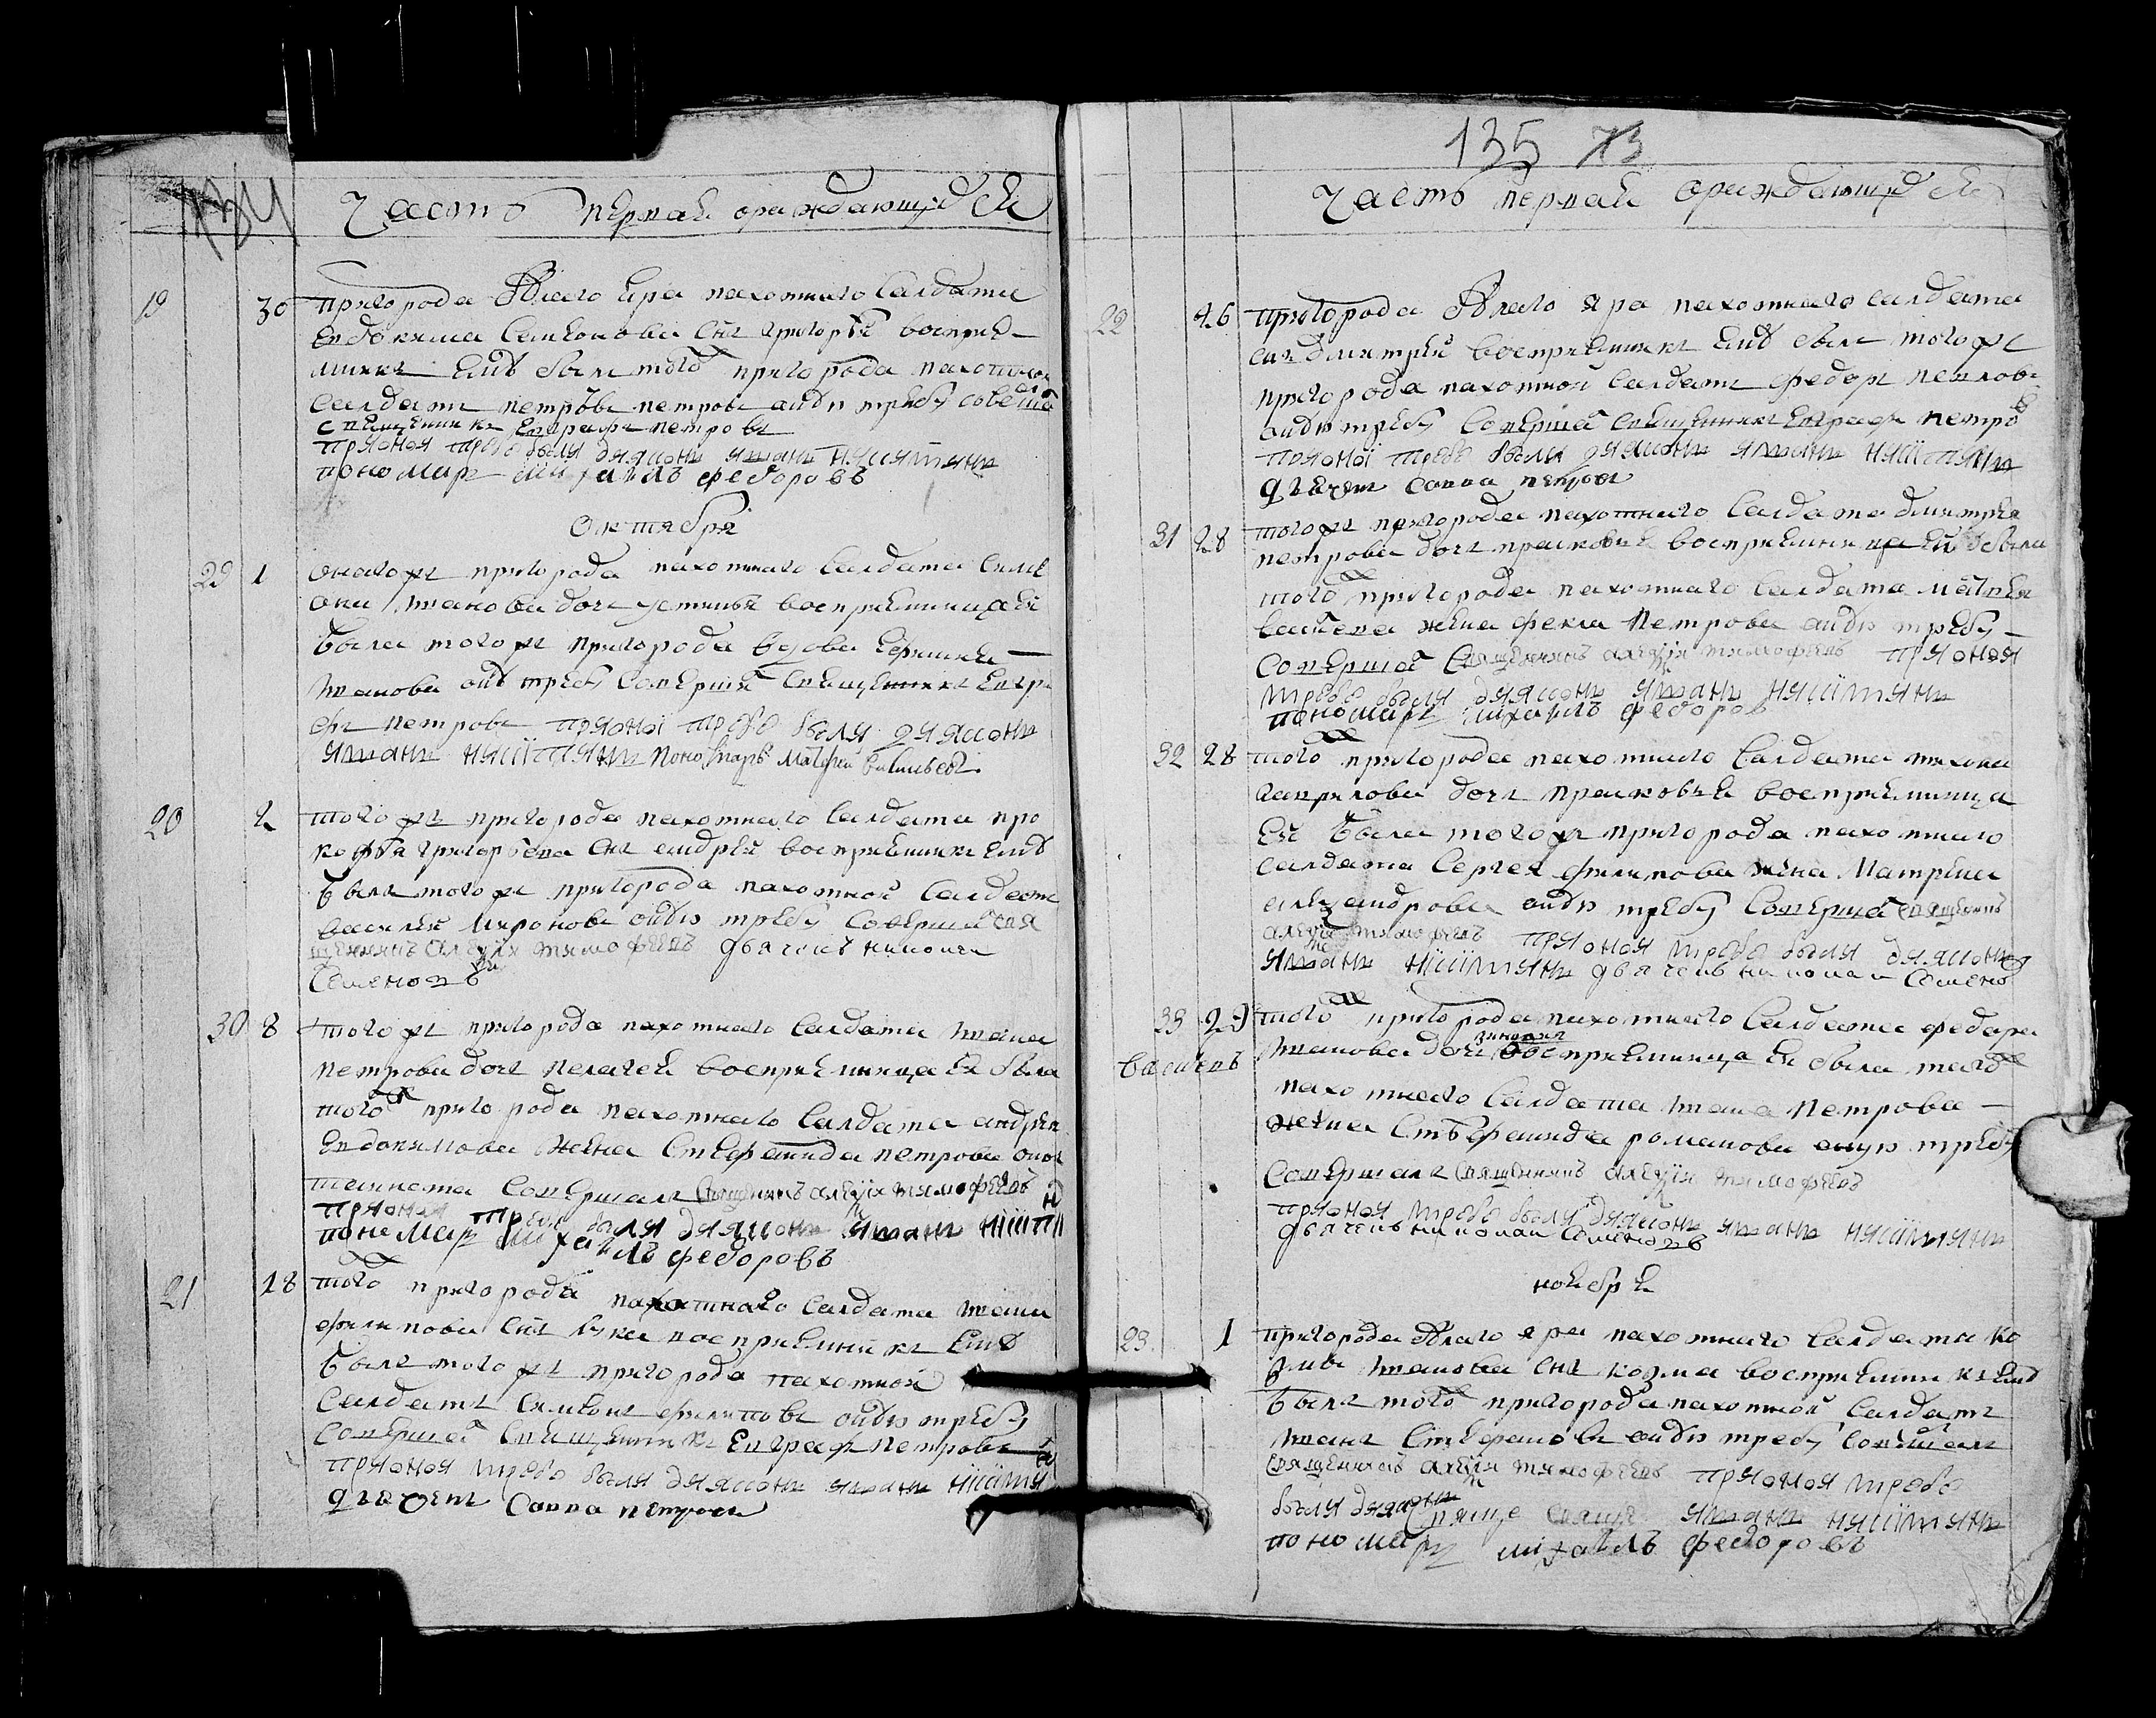 134
часть первая ораждающихся
19 30 пригорода Алаго яра пахотнаго салдата
Евдокима Семионова снъ григорѣй восприе-
мникъ ему былъ того пригорода пахотной
салдатъ петръ петровъ
священникъ Евграфъ петровъ
прионой требе были дияконъ иванъ никитинъ
пономаръ михаилъ федоровъ
октября
29 1 оногожъ пригорода пахотнаго салдата
иванова дочь устинья восприемница ей
была тогожъ пригорода вдова
иванова оную требу совершилъ священникъ Евгра
фъ петровъ прионой требе были диаконъ
иванъ никитинъ пономарь Матфей васильевъ
20 2 тогожъ пригорода пахотнаго салдата про
кофья григорьева снъ андрей восприемникъ ему
былъ тогожъ пригорода пахотной салдатъ
василей миронов оную требу совершилъ свя
щенникъ алеѯѣй тимофеевъ дьячекъ николай
Семеновъ
30 8 тогожъ пригорода пахотнаго салдата ивана
петрова дочь пелагея восприемница ея была
того пригорода пахотнаго салдата андрея
Евдокимова жена Степанида петрова оное
таинство совершалъ священникъ алеѯѣй тимофеевъ
прионой требе были диаконъ иванъ никити
пономаръ михаилъ федоровъ
21 18 того пригорода пахотнаго салдата ивана
филипова снъ лука восприемникъ ему
былъ тогожъ пригорода пахотной
салдатъ Симионъ филиповъ оную требу
совершилъ священникъ Евграфъ петровъ
прионой требе были диаконъ иванъ никити
дьячекъ савва петровъ
135 73
часть первая ораждающихся
22 26 пригорода Алаго яра пахотнаго салдата
снъ дмитрей восприемникъ ему былъ тогожъ
пригорода пахотной салдатъ федоръ павловъ
оную требу совершилъ священникъ Евграфъ петро
прионой требе были диаконъ иванъ никитинъ
дьячекъ савва петровъ
31 28 тогожъ пригорода пахотнаго салдата дмитрея
петрова дочь прасковья восприемница ей была
того пригорода пахотнаго салдата
жена фекла петрова оную требу
совершилъ священникъ алеѯѣй тимофеевъ прионой
требе были диаконъ иванъ никитинъ
пономаръ михаилъ федоров
32 28 того пригорода пахотнаго салдата тихона
гаврилова дочь прасковья восприемница
ей была тогожъ пригорода пахотнаго
салдата Сергея филипова жена Матрена
алеѯандрова оную требу совершилъ священникъ
алеѯѣй тимофеевъ прионой требе были диаконъ
иванъ никитинъ дьячекъ николаи Семено
33 29 того пригорода пахотнаго салдата федора
иванова дочь восприемница ея была того
пахотнаго салдата ивана петрова
жена Степанида романова оную требу
совершалъ священникъ алеѯѣй тимофеевъ
прионой требе были диаконъ иванъ никитинъ
дьячекъ николаи Семеновъ
ноября
23 1 пригорода Алаго яра пахотнаго салдата ко
змы иванова снъ козма восприемникъ ему
былъ того пригорода пахотной салдатъ
иванъ Степановъ оную требу
священникъ алеѯѣй тимофеевъ прионой требе
были диаконъ иванъ никитинъ
пономаръ михаилъ федоровъ